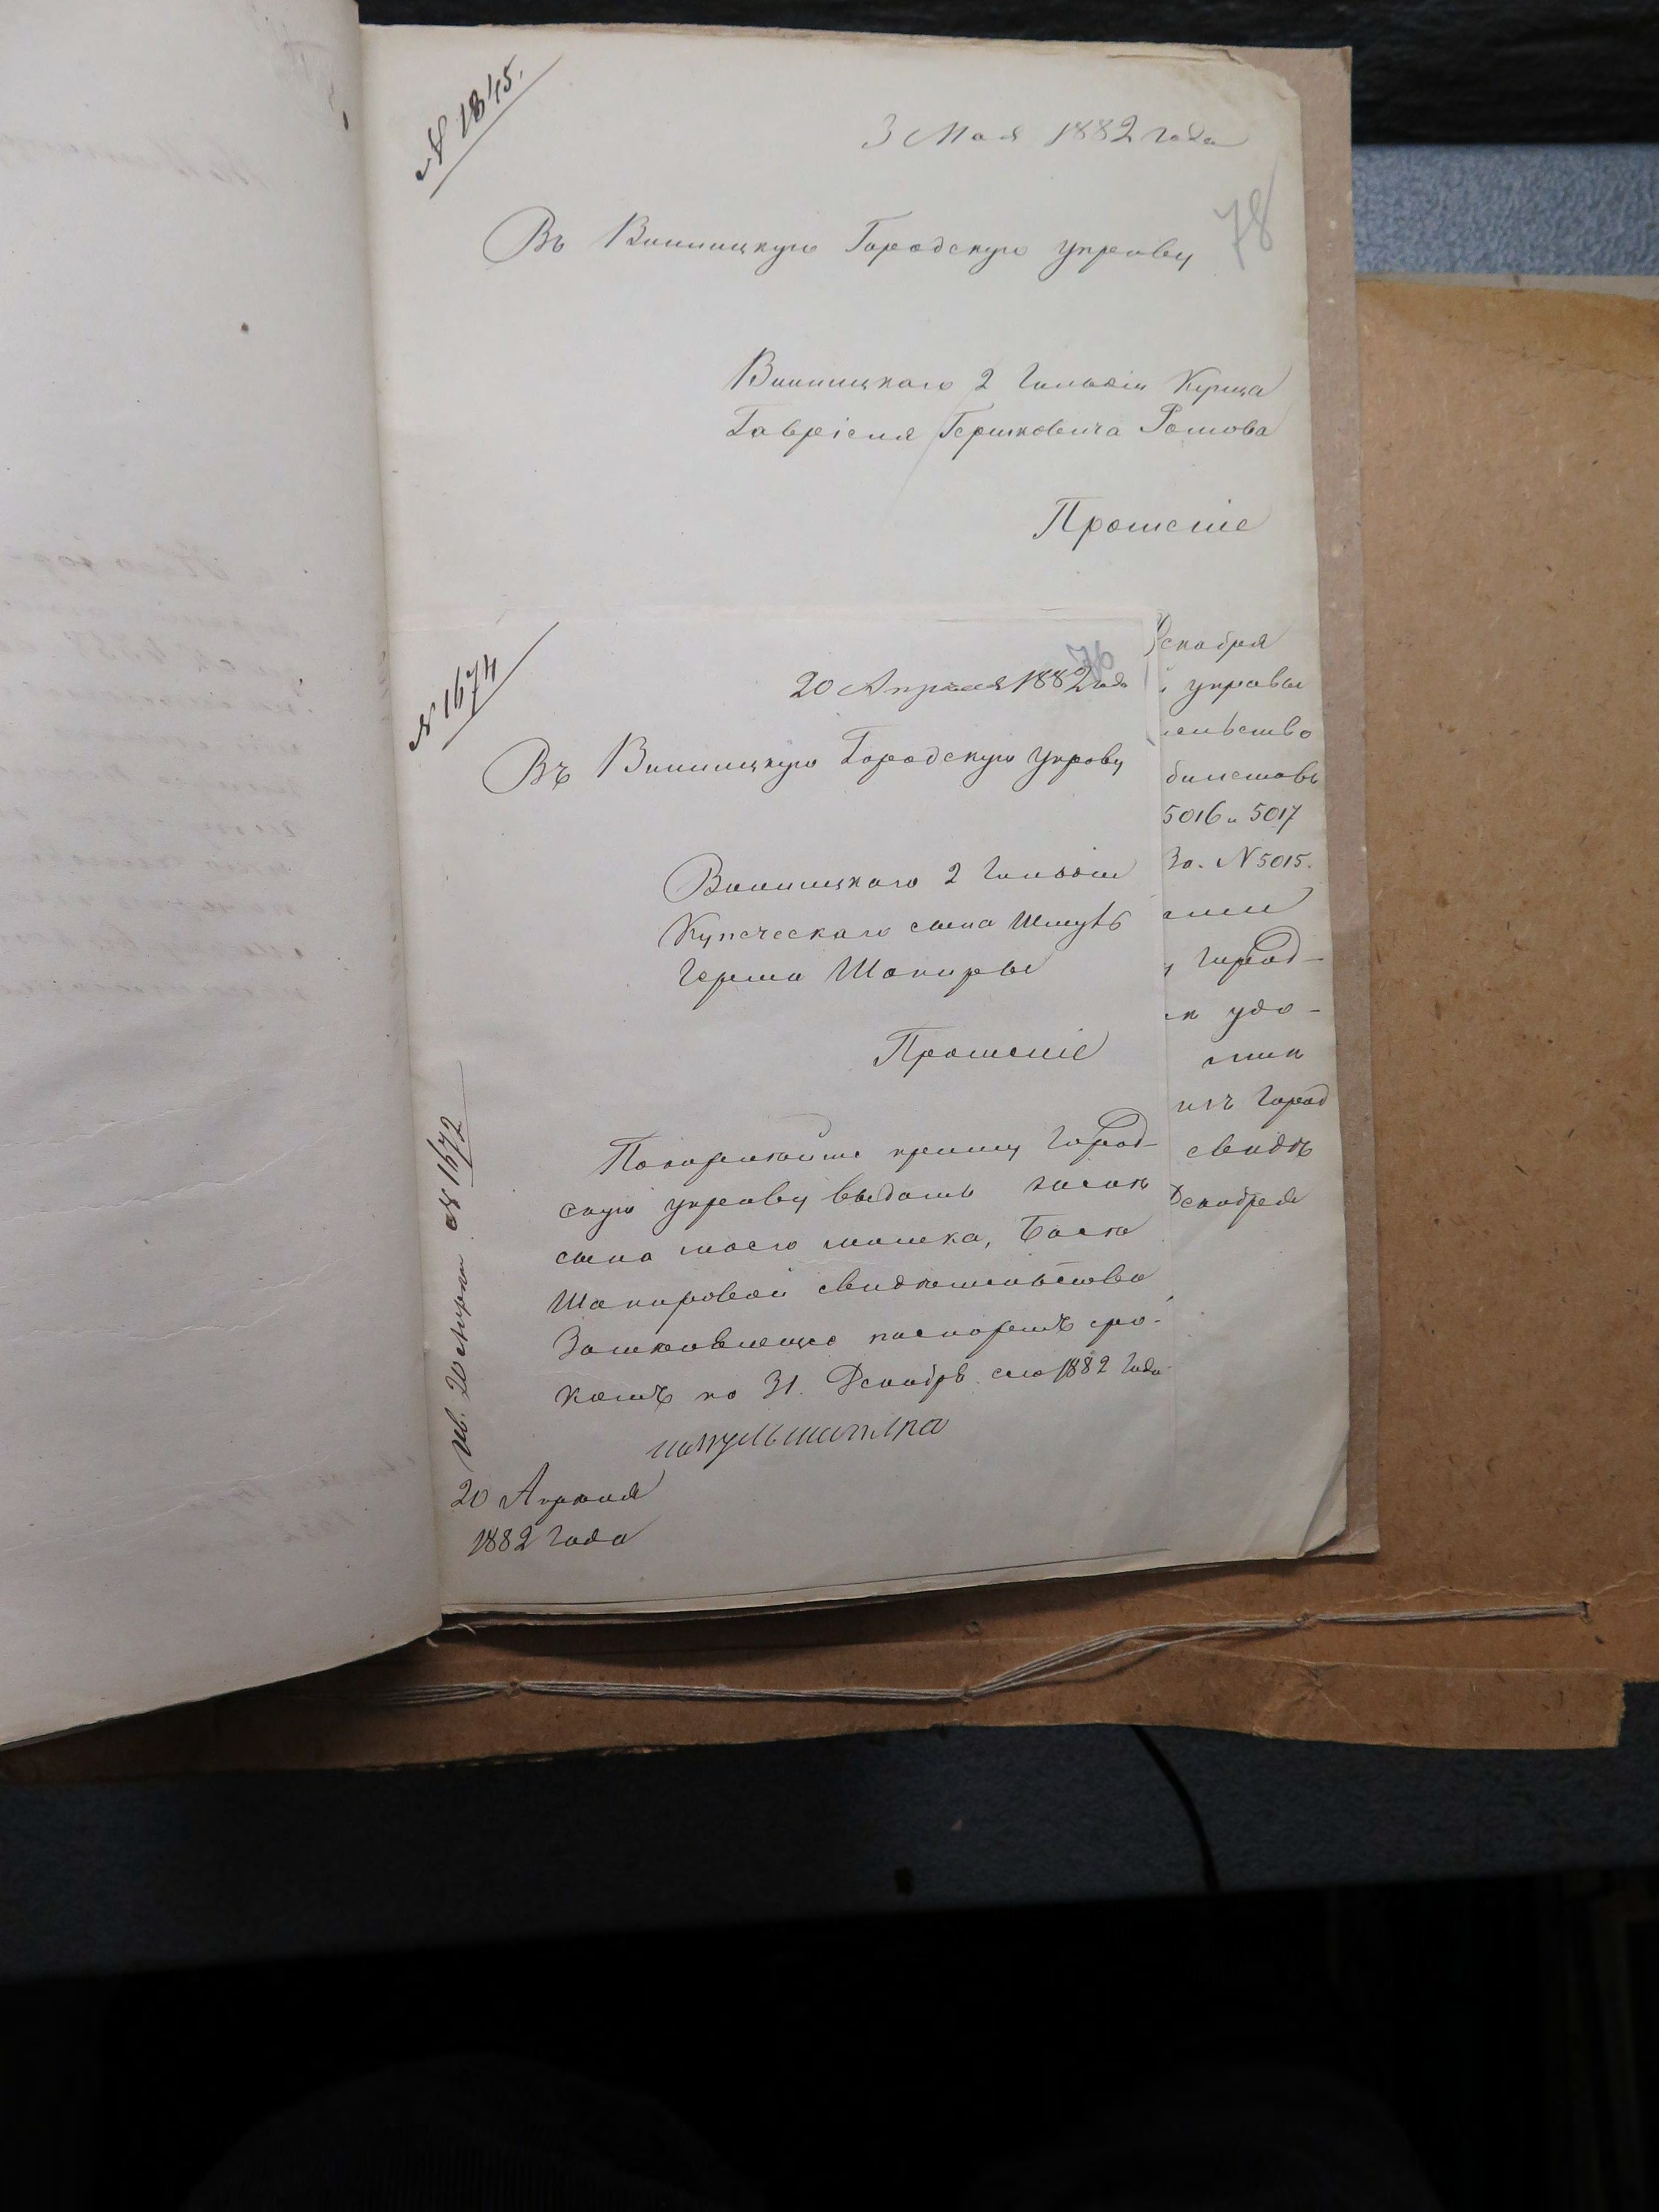 № 1845.
3 Мая 1882 года
78
Въ Винницкую Городскую управу
Винницкаго 2 Гильдіи Купца
Гавріеля Гершковича Ротова
Прошеніе
Декабря
управы
билетовъ
5016 и 5017
За. № 5015.
Город-
удо-
Город
свидѣ
Декабря
№ 1674
76
20 Апреля 1882 года
Въ Винницкую Городскую Управу
Винницкаго 2 Гильдіи
Купеческаго сына Шмуль
Герша Шапиры
Прошеніе
Покорнѣйше прошу Город-
скую управу выдать
сына моего Мошка, Баси
Шапировой свидѣтельство
паспортъ сро-
комъ по 31. Декабрѣ сего 1882 года
20 Апрѣля
1882 Года
20 Апрѣля № 1672